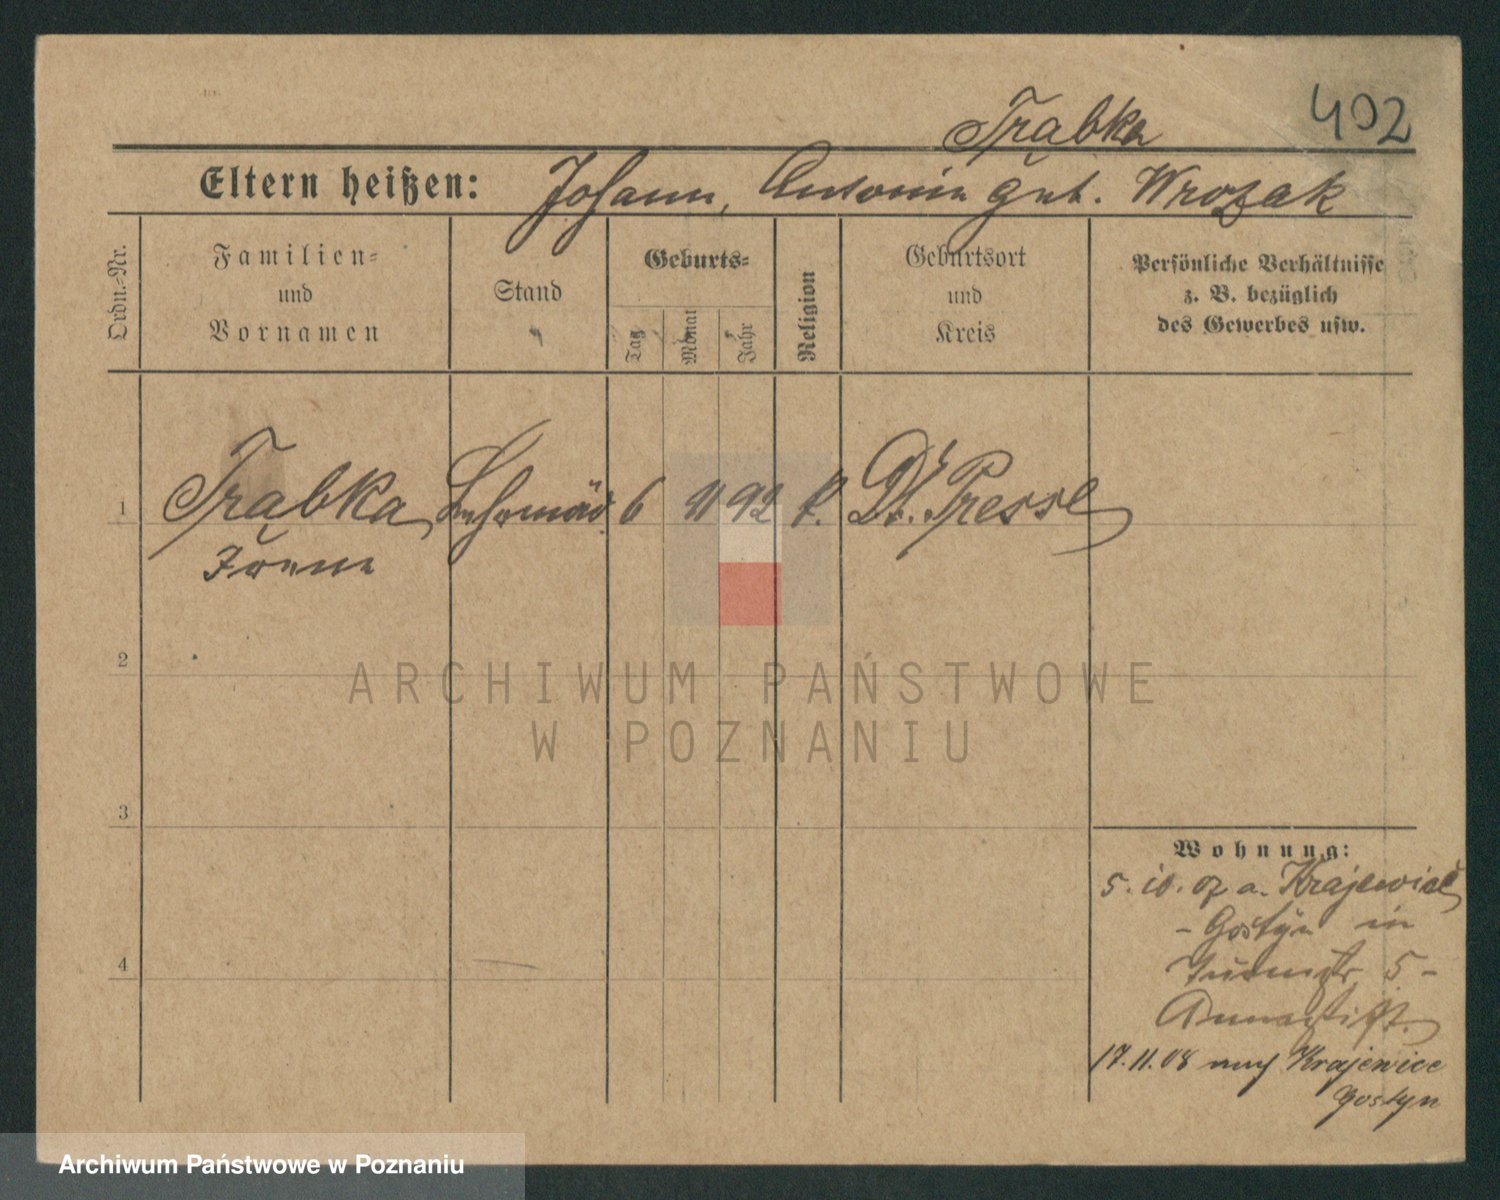 402
Trąbka
Eltern heißen: Johann, Antonin geb. Wrozak
Ordn.-Nr.
Familien-
und
Vornamen
Stand
Geburts-
Tag
Monat
Jahr
Religion
Geburtsort
und
Kreis
Persönliche Verhältnisse
z. B. bezüglich
des Gewerbes usw.
1 Trąbka, 6 11 92 k. Dt. Presse
2
3
4
ARCHIWUM PAŃSTWOWE
W POZNANIU
Wohnung:
5. 10. 07 a. Krajewice
- Gostyn in
5 -
Annastift.
17.11.08 nach Krajewice
Gostyn
Archiwum Państwowe w Poznaniu